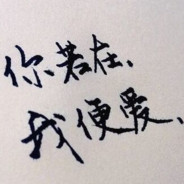 你若在、
我便爱、